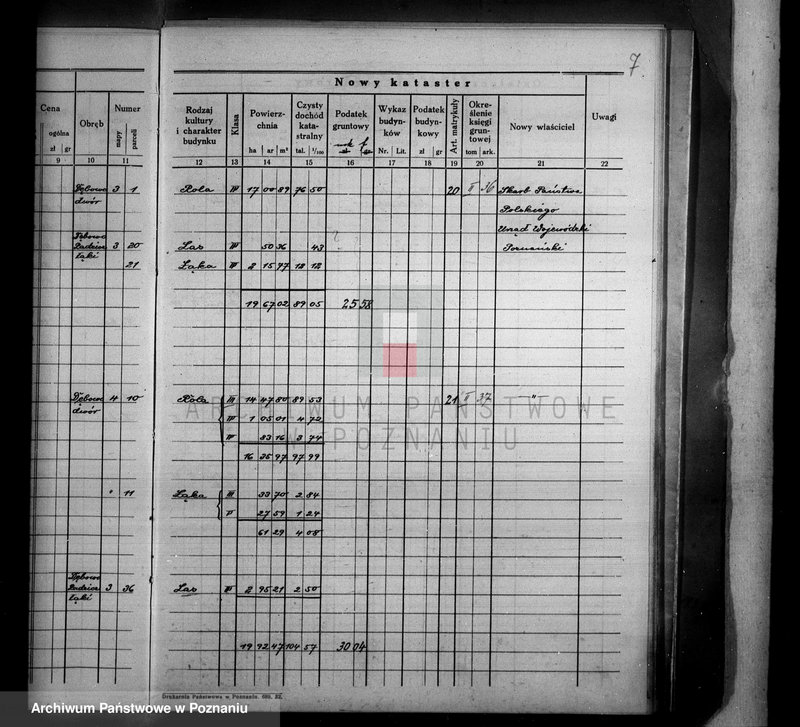 7
Nowy kataster
Cena Obręb Numer Rodzaj kultury i charakter budynku Klasa Powierzchnia Czysty dochód katastralny Podatek gruntowy Wykaz budynków Podatek budynkowy Art. matrykuły Określenie księgi gruntowej Nowy właściciel Uwagi
ogólna mapy parceli
zł gr ha ar m² tal. 1/100 Nr. Lit. zł gr tom ark.
9 10 11 12 13 14 15 16 17 18 19 20 21 22
Dębowa 3 1 Rola III 17 00 89 76 50 20 II 36 Skarb Państwa
dwór Polskiego
Dębowa Urząd Wojewódzki
3 20 Las III 50 36 43 Poznański
łąki 21 Łąka III 2 15 77 12 12
19 67 02 89 05 25 58
Dębowa 4 10 Rola III 14 47 80 89 53 21 II 37 -"-
dwór IV 1 05 01 4 72
83 16 3 74
16 35 97 97 99
" 11 Łąka III 33 70 2 84
27 59 1 24
61 29 4 08
Dębowa
3 36 Las III 2 95 21 2 50
łąki
19 92 47 104 57 30 04
Drukarnia Państwowa w Poznaniu. 689. 32.
ARCHIWUM PAŃSTWOWE
W POZNANIU
Archiwum Państwowe w Poznaniu